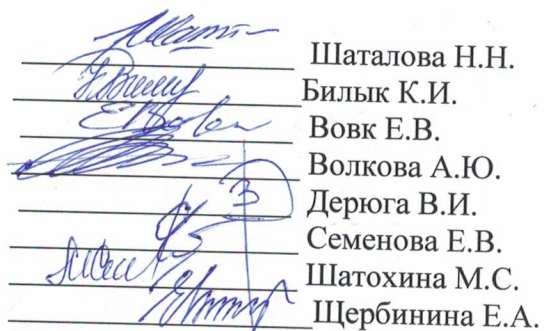 Шаталова Н.Н.
Билык К.И.
Вовк Е.В.
Волкова А.Ю.
Дерюга В.И.
Семенова Е.В.
Шатохина М.С.
Щербинина Е.А.